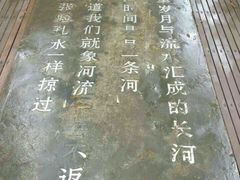 岁月与流水汇成的长河
时间 一条河
道我们就象河流 不返
张脸孔水一样掠过